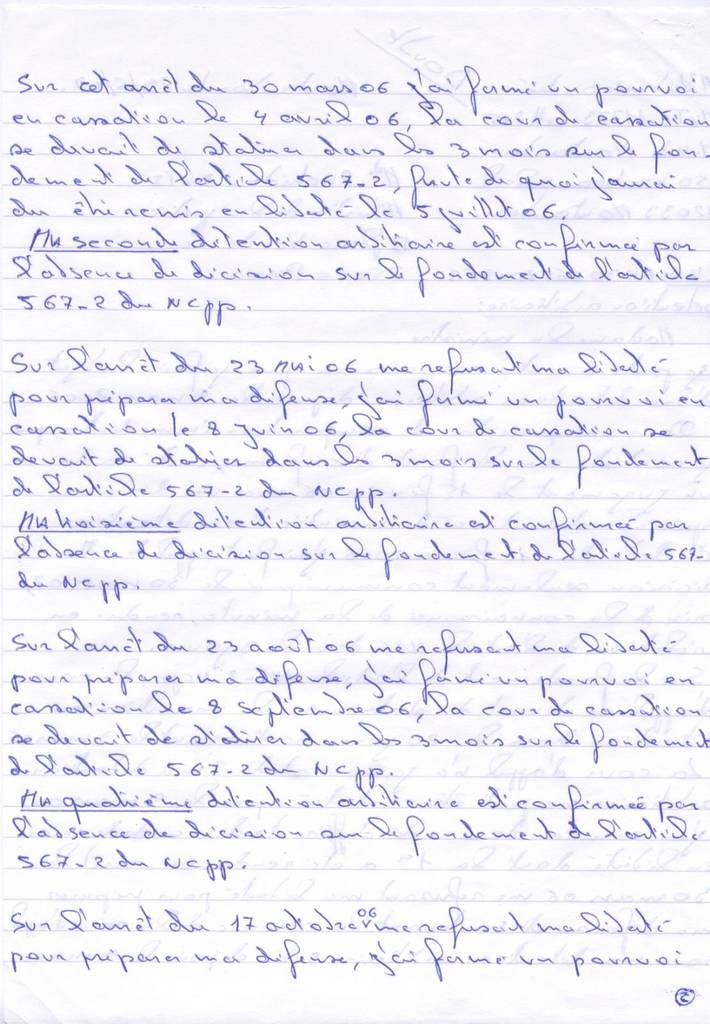 Sur cet arrêt du 30 mars 06 j'ai formé un pourvoi
en cassation le 4 avril 06, la cour de cassation
se devait de statuer dans les 3 mois sur le fon-
dement de l'article 567-2, faute de quoi j'aurai
du être remis en liberté le 5 juillet 06.
MA seconde détention arbitraire est confirmée par
l'absence de décision sur le fondement de l'article
567-2 du NCpp.
Sur l'arrêt du 23 MAi 06 me refusant ma liberté
pour préparer ma défense, j'ai formé un pourvoi en
cassation le 8 juin 06, la cour de cassation se
devait de statuer dans les 3 mois sur le fondement
de l'article 567-2 du NCpp.
MA troisième détention arbitraire est confirmée par
l'absence de décision sur le fondement de l'article 567-
du NCpp.
Sur l'arrêt du 23 août 06 me refusant ma liberté
pour préparer ma défense, j'ai formé un pourvoi en
cassation le 8 septembre 06, la cour de cassation
se devait de statuer dans les 3 mois sur le fondement
de l'article 567-2 du NCpp.
MA quatrième détention arbitraire est confirmée par
l'absence de décision sur le fondement de l'article
567-2 du NCpp.
Sur l'arrêt du 17 octobre 06 me refusait ma liberté
pour préparer ma défense, j'ai formé un pourvoi
2